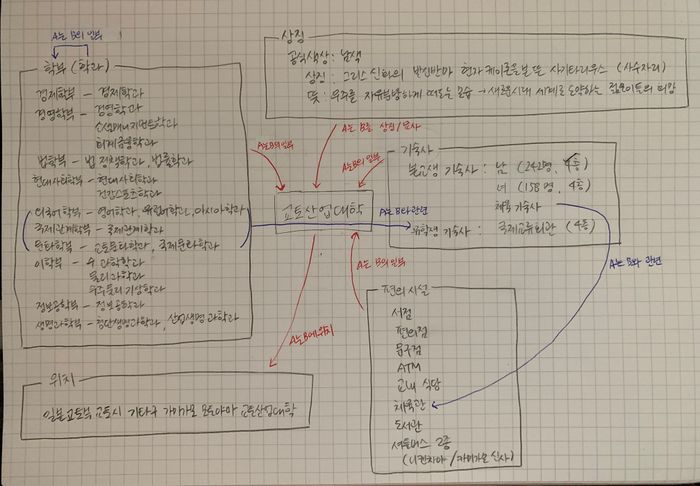 A는 B의 일부
학부 (학과)
경제학부 - 경제학과
경영학부 - 경영학과
소셜매니지먼트학과
회계금융학과
법학부 - 법정책학과, 법률학과
현대사회학부 - 현대사회학과
건강스포츠학과
외국어학부 - 영어학과, 유럽어학과, 아시아학과
국제관계학부 - 국제관계학과
문화학부 - 교토문화학과, 국제문화학과
이학부 - 수리과학과
물리과학과
우주물리·기상학과
정보공학부 - 정보공학과
생명과학부 - 첨단생명과학과, 산업생명과학과
상징
공식색상: 남색
상징: 그리스 신화의 반신반마 현자 케이론을 본 뜬 사기타리우스 (사수자리)
뜻: 우주를 자유분방하게 떠도는 모습 → 새로운 시대 세계로 도약하는 젊은이들의 희망
A는 B의 일부
A는 B를 상징/묘사
A는 B의 일부
교토산업대학
기숙사
불교생 기숙사: 남 (242명, 4층)
녀 (158명, 4층)
체육 기숙사
유학생 기숙사: 국제교류회관 (4층)
A는 B와 관련
A는 B와 관련
A는 B의 일부
A는 B에 위치
편의시설
서점
편의점
문구점
ATM
교내 식당
체육관
도서관
셔틀버스 2종
(니켄차야/카미가모 신사)
위치
일본 교토부 교토시 기타구 가미가모 모토야마 교토산업대학